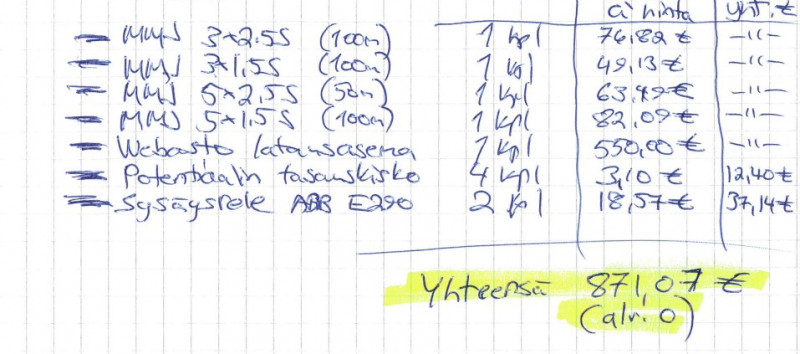 á hinta yht. €
- MMJ 3x2.5S (100m) 1 kpl 76,82 € -"-
- MMJ 3x1,5S (100m) 1 kpl 49,13 € -"-
- MMJ 5x2,5S (50m) 1 kpl 63,49 € -"-
- MMJ 5x1,5S (100m) 1 kpl 82,09 € -"-
- Webasto latausasema 1 kpl 550,00 € -"-
- Potentiaalin tasauskisko 4 kpl 3,10 € 12,40 €
- Sysäysrele ABB E290 2 kpl 18,57 € 37,14 €
Yhteensä 871,07 €
(alv. 0)